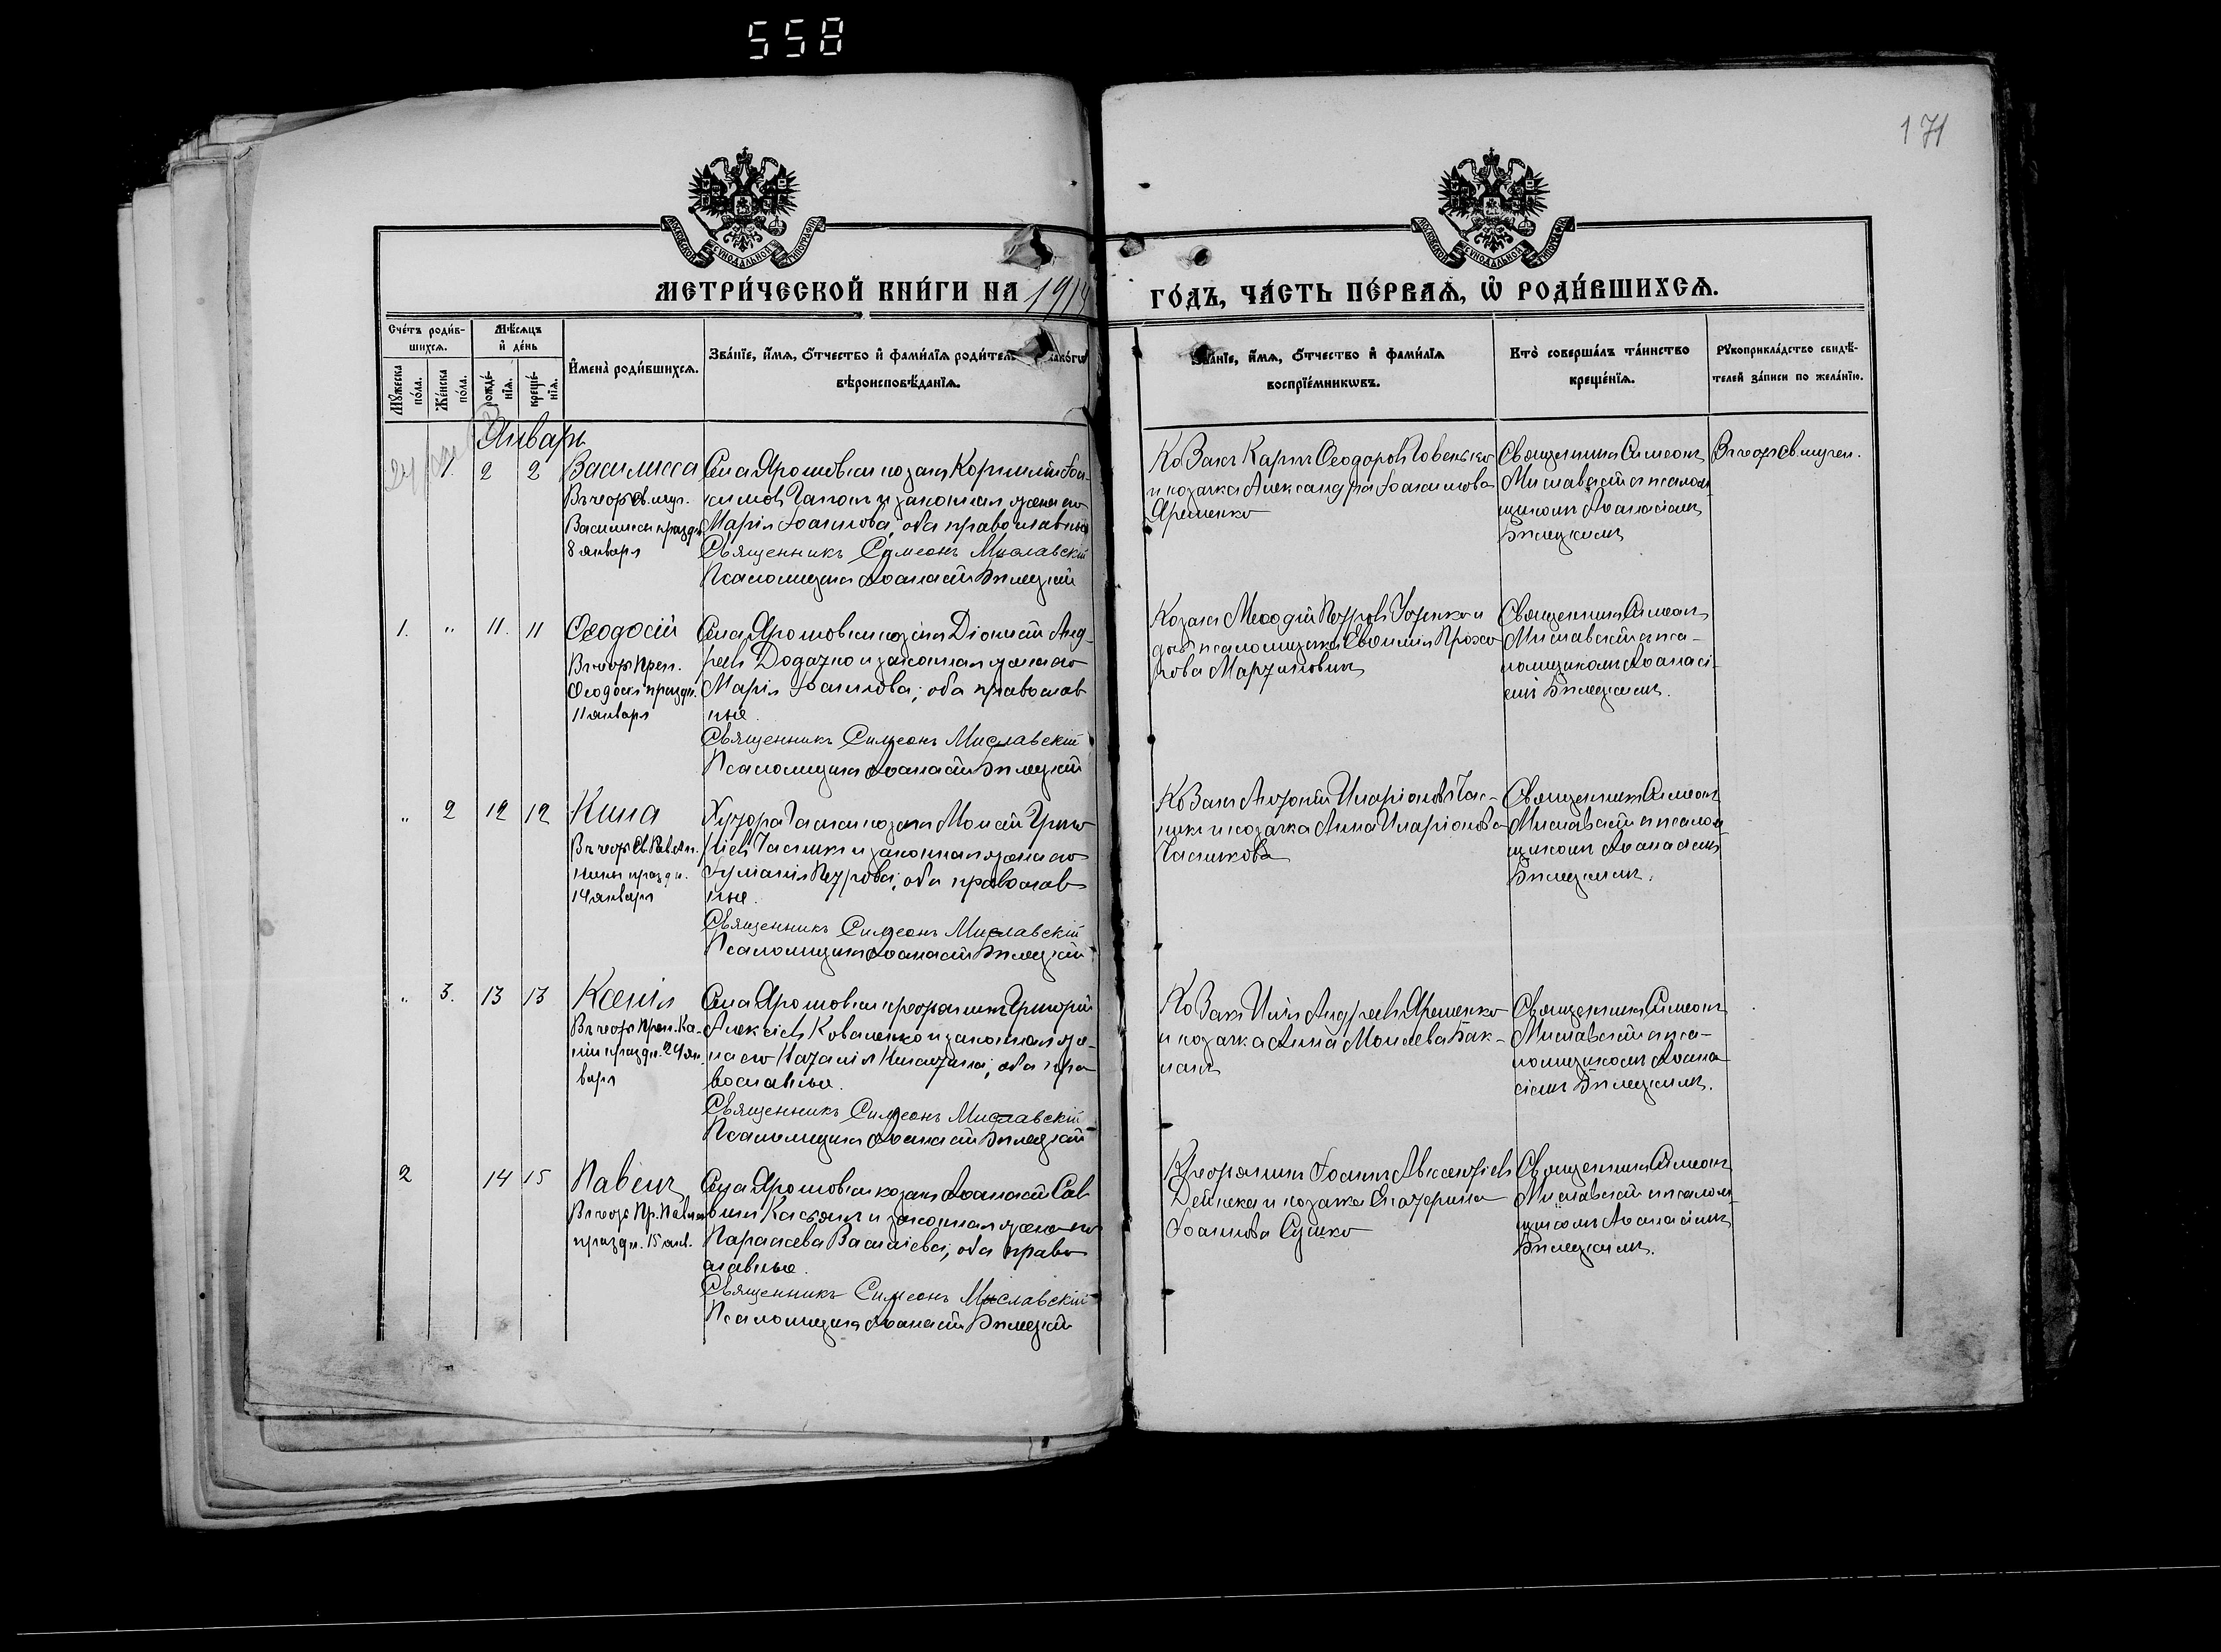 558
171
МОСКОВСКОЙ СѴНОДАЛЬНОЙ ТИПОГРАФІИ
МОСКОВСКОЙ СѴНОДАЛЬНОЙ ТИПОГРАФІИ
МЕТРИ́ЧЕСКОЙ КНИ́ГИ НА 1914
ГО́ДЪ, ЧА́СТЬ ПЕ́РВАѦ, Ѡ҆ РОДИ́ВШИХСѦ.
Сче́тъ роди́в-
шихсѧ.
Мꙋ́жеска по́ла.
Же́нска по́ла.
Мѣ́сѧцъ
и҆ де́нь
рожде́-
нїѧ.
креще́-
нїѧ.
И҆мена̀ роди́вшихсѧ.
Зва́нїе, и҆́мѧ, ѻ҆́тчество и҆ фами́лїѧ родител
вѣроисповѣ́данїѧ.
Зва́нїе, и҆́мѧ, ѻ҆́тчество и҆ фами́лїѧ
воспрїе́мникѡвъ.
Кто̀ соверша́лъ та́инство
креще́нїѧ.
Рꙋкоприкла́дство свидѣ́-
телей за́писи по жела́нїю.
Январь
1. 2 2
Василисса
Въ честь св. муч.
Василисы праздн.
8 января
Села Ярошовки козакъ Корнилій Іоа-
кимовъ и законная жена его
Марія Іоакимова, оба православные
Священникъ Симеонъ Миславскій
Псаломщикъ Аѳанасій Бѣлецкій
Козакъ Карпъ Ѳеодоровъ
и козачка Александра Іоакимова
Яременко
Священникъ Симеонъ
Миславскій съ псалом-
щикомъ Аѳанасіемъ
Бѣлецкимъ
Въ честь св. мучен.
1. " 11. 11
Ѳеодосій
Въ честь Преп.
Ѳеодосія праздн.
11 января
Села Ярошовки козакъ Діонисій Анд-
реевъ Додатко и законная жена его
Марія Іоакимова; оба православ
ные.
Священникъ Симеонъ Миславскій
Псаломщикъ Аѳанасій Бѣлецкій
Козакъ Меѳодій Петровъ и
псаломщика Евѳимія Прохо
рова Мартиновичъ
Священникъ Симеонъ
Миславскій съ пса-
ломщикомъ Аѳанасі-
емъ Бѣлецкимъ.
" 2 12 12
Нина
Въ честь Св. Рав. Ап.
Нины праздн.
14 января
Хутора козакъ Моисей Григо
ріевъ и законная жена его
Іуліанія Петрова; оба православ
ные.
Священникъ Симеонъ Миславскій
Псаломщикъ Аѳанасій Бѣлецкій
Козакъ Антоній Иларіоновъ Пас-
и козачка Анна Иларіонова
Священникъ Симеонъ
Миславскій съ псалом-
щикомъ Аѳанасіемъ
Бѣлецкимъ.
" 3. 13 13
Ксенія
Въ честь Преп. Ксе-
ніи праздн. 24 ян-
варя
Села Ярошовки крестьянинъ Григорій
Алексіевъ Коваленко и законная же-
на его Наталія Никитина; оба пра
вославные.
Священникъ Симеонъ Миславскій
Псаломщикъ Аѳанасій Бѣлецкій
Козакъ Илія Андреевъ Яременко
и козачка Анна Моисеева Бак-
Священникъ Симеонъ
Миславскій съ пса-
ломщикомъ Аѳана
сіемъ Бѣлецкимъ.
2 14 15
Павелъ
Въ честь Пр. Павла
праздн. 15 янв.
Села Ярошовки козакъ Аѳанасій Сав
винъ Касьянъ и законная жена его
Параскева Василіева; оба право
славные.
Священникъ Симеонъ Миславскій
Псаломщикъ Аѳанасій Бѣлецкій
Крестьянинъ Іоаннъ Авксентіевъ
Дейнека и козачка Екатерина
Іоаннова Сушко
Священникъ Симеонъ
Миславскій съ псалом-
щикомъ Аѳанасіемъ
Бѣлецкимъ.